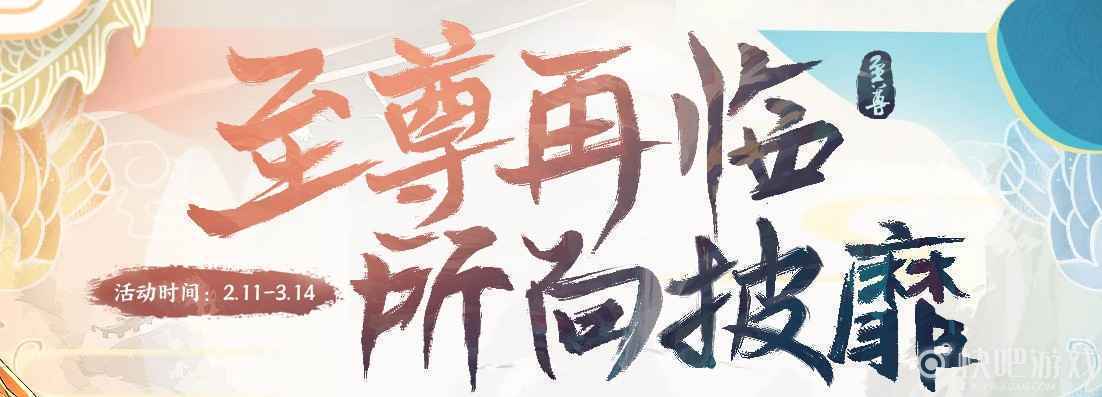 至尊再临
至尊
所向披靡
活动时间：2.11-3.14
快吧游戏